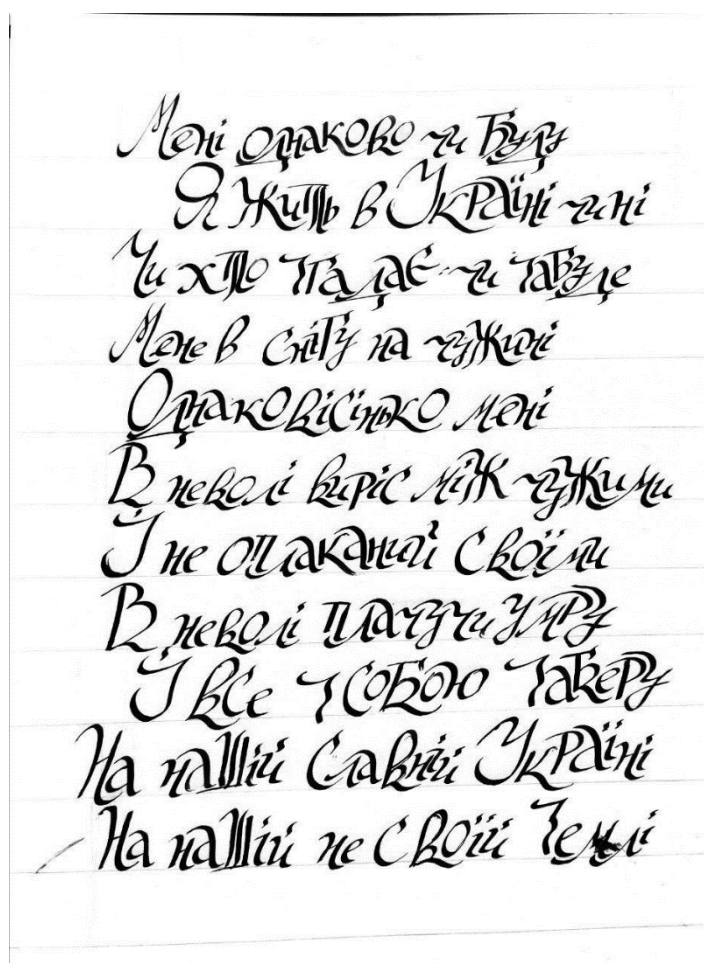 Мені однаково чи буду
Я жить в Україні чи ні
Чи хто згадає чи забуде
Мене в снігу на чужині
Однаковісінько мені
В неволі виріс між чужими
І не оплаканий своїми
В неволі плачучи умру
І все з собою заберу
На нашій славній Україні
На нашій не своїй землі